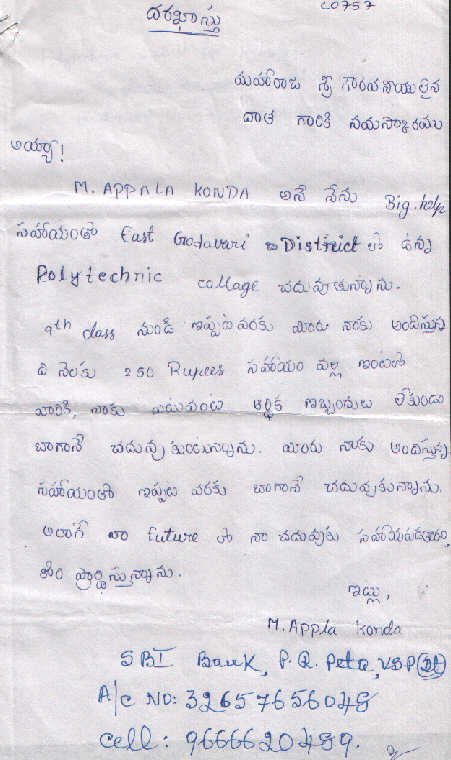 L0757
దరఖాస్తు
మహారాజ శ్రీ గౌరవనీయులైన
దాత గారికి నమస్కారము
అయ్యా!
M. APPALA KONDA అనే నేను Big.help
సహాయంతో East Godavari District లో ఉన్న
Polytechnic collage చదువుతున్నాను.
9th class నుండి ఇప్పటి వరకు మీరు నాకు అందిస్తున్న
ఈ నెలకు 250 Rupees సహాయం వల్ల ఇంటిలో
వారికి, నాకు ఎటువంటి ఆర్థిక ఇబ్బందులు లేకుండా
బాగానే చదువుకుంటున్నాను. మీరు నాకు అందిస్తున్న
సహాయంతో ఇప్పటి వరకు బాగానే చదువుకున్నాను.
అలాగే నా future లో నా చదువుకు సహాయపడతారని
ప్రార్థిస్తున్నాను.
ఇట్లు,
M. Appla Konda
SBI Bank, P.R. Peta, VSP(Dt)
A/c NO: 32657656048
Cell: 9666620489.